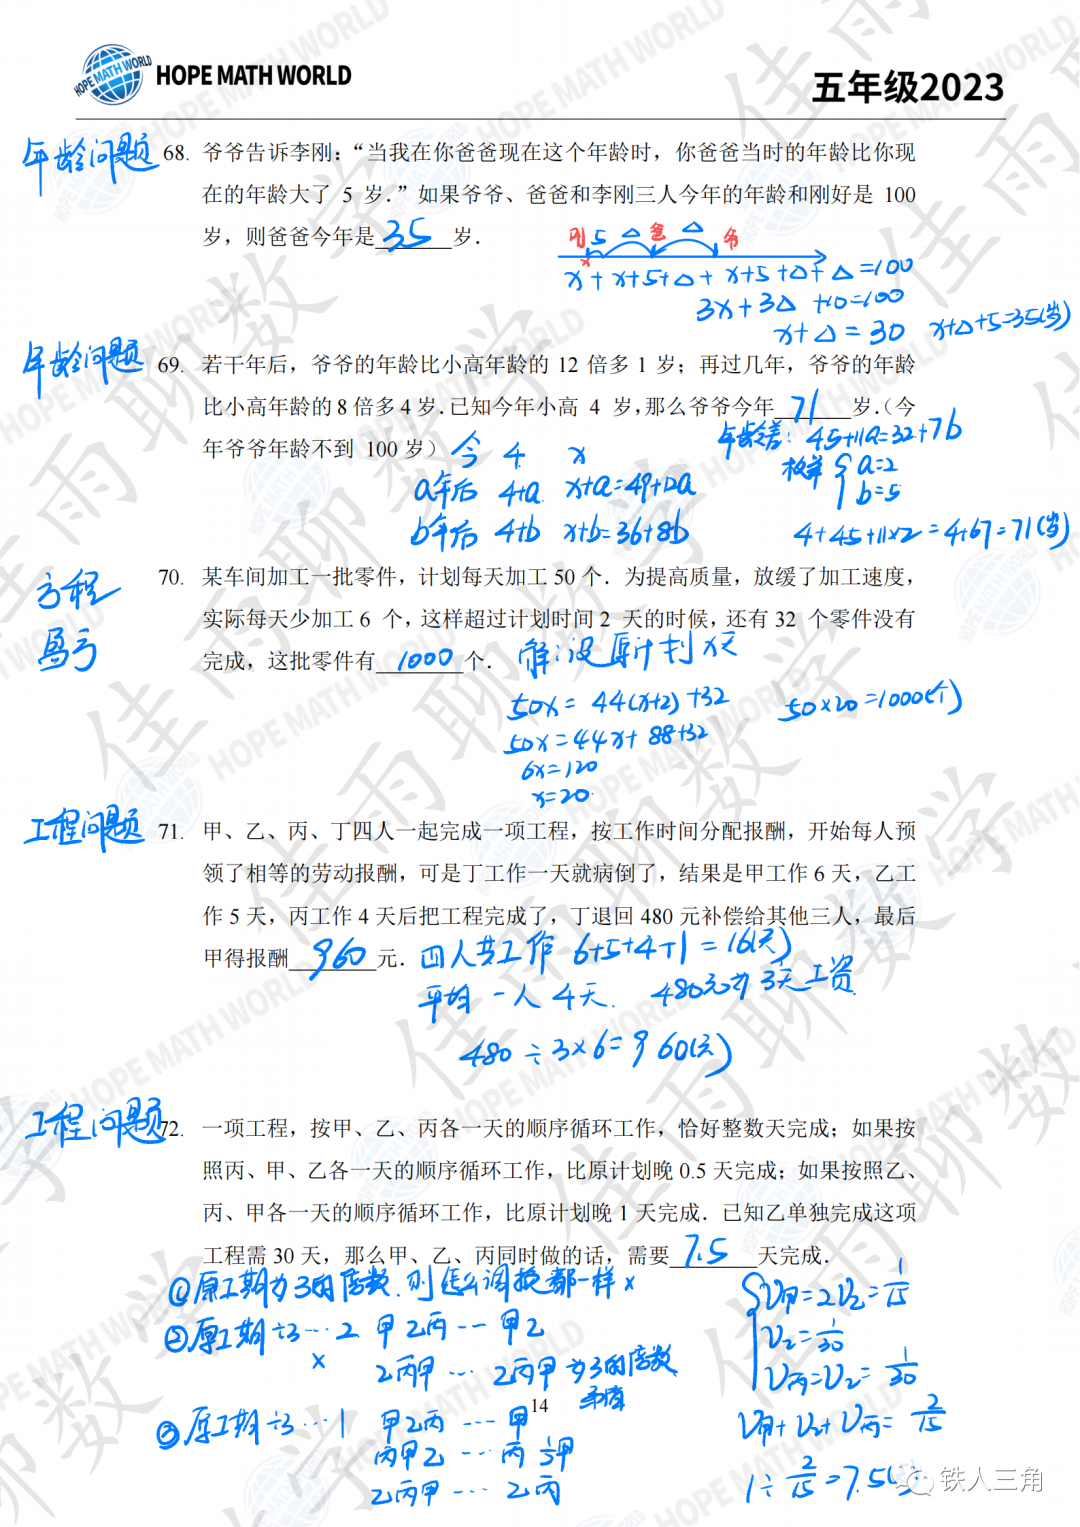 HOPE MATH WORLD
五年级2023
年龄问题
68. 爷爷告诉李刚：“当我在你爸爸现在这个年龄时，你爸爸当时的年龄比你现
在的年龄大了 5 岁．”如果爷爷、爸爸和李刚三人今年的年龄和刚好是 100
岁，则爸爸今年是 35 岁．
刚 5 △ 爸 △ 爷
x
x+x+5+△+x+5+△+△=100
3x+3△+10=100
x+△=30 x+△+5=35(岁)
年龄问题
69. 若干年后，爷爷的年龄比小高年龄的 12 倍多 1 岁；再过几年，爷爷的年龄
比小高年龄的 8 倍多 4 岁．已知今年小高 4 岁，那么爷爷今年 71 岁．（今
年爷爷年龄不到 100 岁）
今 4 x
a年后 4+a x+a=49+12a
b年后 4+b x+b=36+8b
年龄差：45+11a=32+7b
枚举 { a=2
b=5
4+45+11×2=4+67=71(岁)
方程
盈亏
70. 某车间加工一批零件，计划每天加工 50 个．为提高质量，放缓了加工速度，
实际每天少加工 6 个，这样超过计划时间 2 天的时候，还有 32 个零件没有
完成，这批零件有 1000 个．
解：设原计划x天
50x=44(x+2)+32
50x=44x+88+32
6x=120
x=20
50×20=1000(个)
工程问题
71. 甲、乙、丙、丁四人一起完成一项工程，按工作时间分配报酬，开始每人预
领了相等的劳动报酬，可是丁工作一天就病倒了，结果是甲工作 6 天，乙工
作 5 天，丙工作 4 天后把工程完成了，丁退回 480 元补偿给其他三人，最后
甲得报酬 960 元．
四人共工作 6+5+4+1=16(天)
平均一人4天． 480元为3天工资
480÷3×6=960(元)
工程问题
72. 一项工程，按甲、乙、丙各一天的顺序循环工作，恰好整数天完成；如果按
照丙、甲、乙各一天的顺序循环工作，比原计划晚 0.5 天完成；如果按照乙、
丙、甲各一天的顺序循环工作，比原计划晚 1 天完成．已知乙单独完成这项
工程需 30 天，那么甲、乙、丙同时做的话，需要 7.5 天完成．
①原工期为3的倍数，则怎么调换都一样 x
②原工期÷3…2 甲乙丙…甲乙
x
乙丙甲…乙丙甲 为3的倍数
矛盾
③原工期÷3…1 甲乙丙…甲
丙甲乙…丙 ½甲
乙丙甲…乙丙
{ V甲=2V乙=1/15
V乙=1/30
V丙=V乙=1/30
V甲+V乙+V丙=2/15
1÷2/15=7.5(天)
14
铁人三角
佳雨聊数学